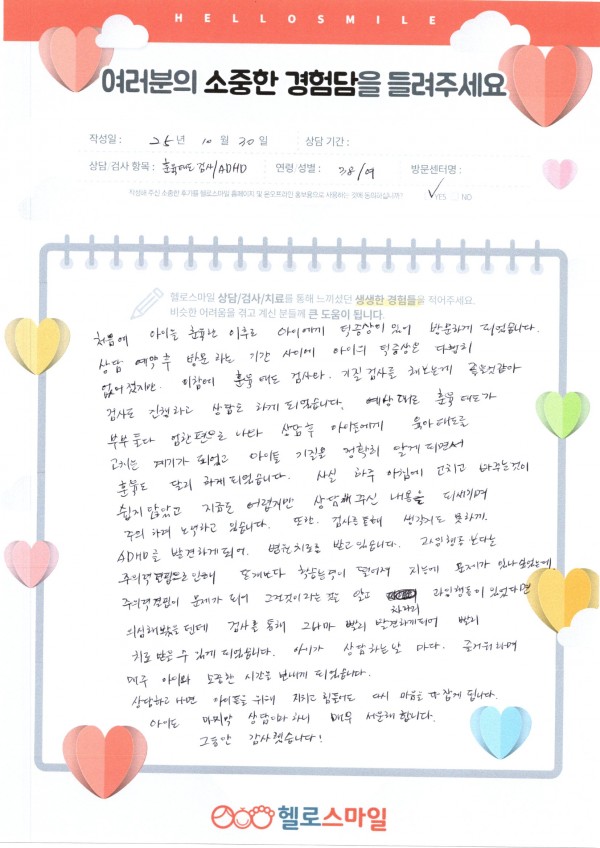 HELLOSMILE
여러분의 소중한 경험담을 들려주세요
작성일 : 25 년 10 월 30 일 상담 기간 :
상담 검사 항목 : 훈육태도검사/ADHD 연령 성별 : 38/여 방문센터명 :
작성해 주신 소중한 후기를 헬로스마일 홈페이지 및 온오프라인 홍보용으로 사용하는 것에 동의하십니까? YES NO
헬로스마일 상담/검사/치료를 통해 느끼셨던 생생한 경험들을 적어주세요.
비슷한 어려움을 겪고 계신 분들께 큰 도움이 됩니다.
처음에 아이를 훈육한 이후로 아이에게 틱증상이 있어 방문하게 되었습니다.
상담 예약 후 방문하는 기간 사이에 아이의 틱증상은 다행히
없어졌지만. 이참에 훈육태도 검사와. 기질검사를 해보는게 좋을것같아
검사도 진행하고 상담도 하게 되었습니다. 예상대로 훈육 태도가
부부 둘다 엄한편으로 나와 상담후 아이에게 육아태도를
고치는 계기가 되었고 아이들 기질을 정확히 알게 되면서
훈육도 달리 하게되었습니다. 사실 하루 아침에 고치고 바꾸는것이
쉽지 않았고 지금도 어렵지만 상담해 주신 내용을 되새기며
주의 하려 노력하고 있습니다. 또한. 검사를 통해 생각지도 못하게.
ADHD를 발견하게되어. 변환치료를 받고 있습니다. 과잉행동 보다는
주의력결핍으로 인해 또래보다 학습능력이 떨어져 지능에 문제가 있나 싶었는데,
주의력결핍이 문제가 되어 그런것이라는 것을 알고 차라리 과잉행동이 있었다면
의심해봤을 텐데 검사를 통해 그나마 빨리 발견하게되어 빨리
치료 받을 수 있게 되었습니다. 아이가 상담하는 날 마다. 즐거워하며
매주 아이와 소중한 시간을 보내게 되었습니다.
상담하고 나면 아이들을 위해 지치고 힘들어도 다시 마음을 다 잡게 됩니다.
아이도 마지막 상담이라 하니 매우 서운해 합니다.
그동안 감사했습니다!
헬로스마일